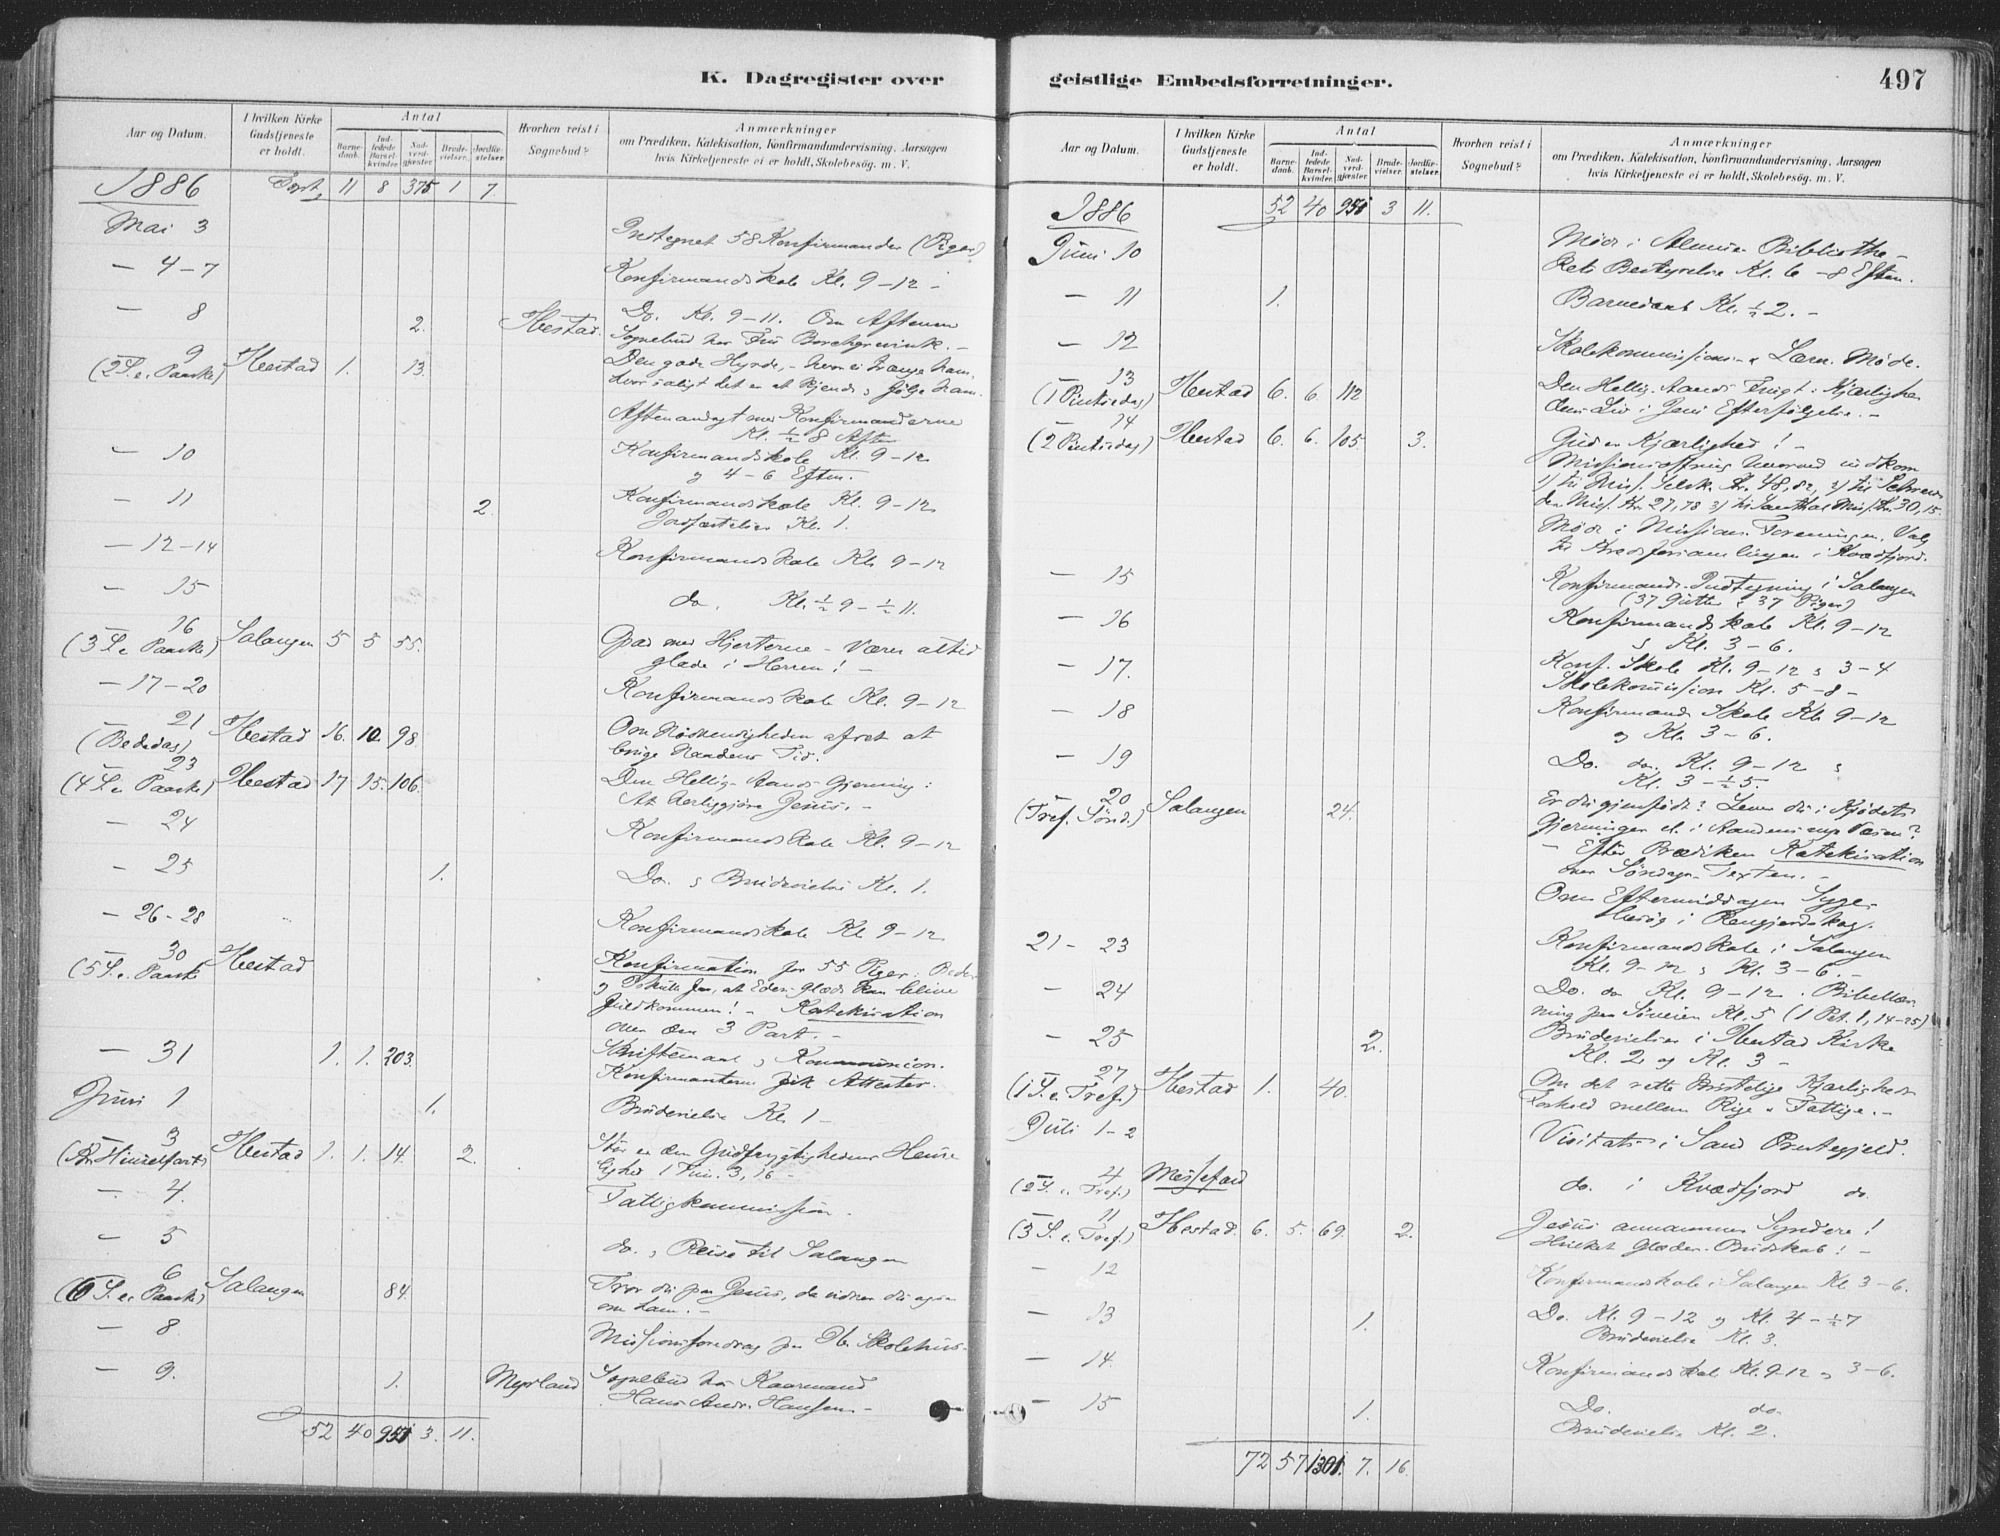 K. Dagregister over
Aar og Datum.
I hvilken Kirke Gudstjeneste er holdt.
Antal
Barnedaab.
Indledede Barselkvinder.
Nadverdgjæster
Brudevielser.
Jordfæstelser.
Hvorhen reist i Sognebud?
Anmærkninger
om Prædiken, Katekisation, Konfirmandundervisning, Aarsagen
hvis Kirketjeneste ei er holdt, Skolebesøg. m. V.
1886 11 8 375 1 7.
Mai 3 58 Konfirmander (Piger)
— 4-7 Konfirmandskole Kl. 9-12 -
— 8 2. Ibestad. Do. Kl. 9-11. Om Aftenen
Sognebud hos Fru Borchgrevink. -
— 9 (2 S. e. Paaske) Ibestad 1. 13. Den gode Hyrde,
hvor saligt det er at kjende og følge ham.
Aftenandagt med Konfirmanderne
Kl. ½ 8 Aften
— 10 Konfirmandskole Kl. 9-12
og 4-6 Efterm.
— 11 2. Konfirmandskole Kl. 9-12
Jordfæstelse Kl. 1.
— 12-14 Konfirmandskole Kl. 9-12
— 15 do. Kl. ½ 9 - ½ 11.
— 16 (3 S. e. Paaske) Salangen 5 5 55. Opad med Hjerterne - Værer altid
glade i Herren! -
— 17-20 Konfirmandskole Kl. 9-12
— 21 (Bededag) Ibestad 16. 10. 98. Om Nødvendigheden af ret at
bruge Naadens Tid.
— 23 (4 S. e. Paaske) Ibestad 17 15. 106. Den Hellig-Aands Gjerning:
At herliggjøre Jesus. -
— 24 Konfirmandskole Kl. 9-12
— 25 1. Do. og Brudevielse Kl. 1.
— 26-28 Konfirmandskole Kl. 9-12
— 30 (5 S. e. Paaske Ibestad Konfirmation for 55 Piger: Beder
og I skulle faa, at Eders Glæde kan blive
fuldkommen! - Katekisation
over den 3 Part. -
— 31 1. 1. 203. Skriftemaal og Kommunion.
Konfirmanterne fik Attester.
Juni 1 1. Brudevielse Kl. 1 -
— 3 (Kr Himmelfart) Ibestad 1. 1. 14. 2. Stor er den Gudfrygtighedens Hemme
lighed 1 Tim. 3, 16 -
— 4. Fattigkommission.
— 5 do. og Reise til Salangen
— 6 (6 S. e. Paaske) Salangen 84. Tror du paa Jesus, da vidner du ogsaa
om ham. -
— 8 Missionsforedrag paa Ib. Skolehus -
— 9. 1. Myrland Sognebud hos Kaarmand
Hans Andr. Hansen -
52 40 951 3. 11.
geistlige Embedsforretninger.
497
Aar og Datum.
I hvilken Kirke Gudstjeneste er holdt.
Antal
Barnedaab.
Indledede Barselkvinder.
Nadverdgjæster
Brudevielser.
Jordfæstelser.
Hvorhen reist i Sognebud?
Anmærkninger
om Prædiken, Katekisation, Konfirmandundervisning, Aarsagen
hvis Kirketjeneste ei er holdt, Skolebesøg. m. V.
1886 52 40 951 3 11.
Juni 10 Møde i Almue Bibliothe-
kets Bestyrelse Kl. 6-8 Efterm.
— 11 1. Barnedaab Kl. ½ 2. -
— 12 Skolekommission Møde.
— 13 (1 Pintsedag) Ibestad 6. 6. 112 Den Hellig-Aands Frugt: Kjærlighe
dens Liv i Jesu Efterfølgelse. -
— 14 (2 Pintsedag) Ibestad 6. 6. 105. 3. Gud er Kjærlighed! -
Missionsoffring hvorved indkom
1) til Miss. Selsk. Kr. 48,82, 2) til Schreu
der Miss. Kr 27,78 3) til Santhal Miss. Kr. 30,15
Møde i Missions-Foreningen. Valg
til Kredsforsamlingen i Kvædfjord.
— 15 Konfirmands-Indtegning i Salangen
(37 Gutter & 37 Piger)
— 16 Konfirmandskole Kl. 9-12
og Kl. 3-6.
— 17. Konf. Skole Kl. 9-12 og 3-4
Skolekommission Kl. 5-8 -
— 18 Konfirmand Skole Kl. 9-12
og Kl. 3-6.
— 19 Do. do. Kl. 9-12 og
Kl. 3 - ½ 5.
— 20 (Tref. Sønd.) Salangen 24. Er du gjenfødt? Lever du i Kjødets
Gjerninger el. i Aandens nye Væsen?
- Efter Prædiken Katekisation
over Søndags-Texten. -
Om Eftermiddagen Syge-
besøg i
21 - 23 Konfirmandskole i Salangen
Kl. 9-12 og Kl. 3-6. -
— 24 Do. do Kl. 9-12. Bibellæs
ning paa Søveien Kl. 5 (1 Pet. 1, 14-25)
— 25 2. Brudevielser i Ibestad Kirke
Kl. 2 og Kl. 3 -
— 27 (1 S. e. Tref.) Ibestad 1. 40. Om det rette Kristelige Kjærligheds
Forhold mellem Rige & Fattige. -
Juli 1-2 Visitats i Sand Præstegjeld.
— 4 (2 S. e. Tref.) Messefald do. i Kvædfjord do.
— 11 (3 S. e. Tref.) Ibestad. 6. 5. 69. 2. Jesus annammer Syndere!
Hvilket Glædens-Budskab! -
— 12 Konfirmandskole i Salangen Kl. 3-6.
— 13 1. Do. Kl. 9-12 og Kl. 4 - ½ 7
Brudevielse Kl. 3.
— 14. Konfirmandskole Kl. 9-12 og 3-6.
— 15 1. Do. do.
Brudevielse Kl. 2.
72 57 1301. 7. 16.